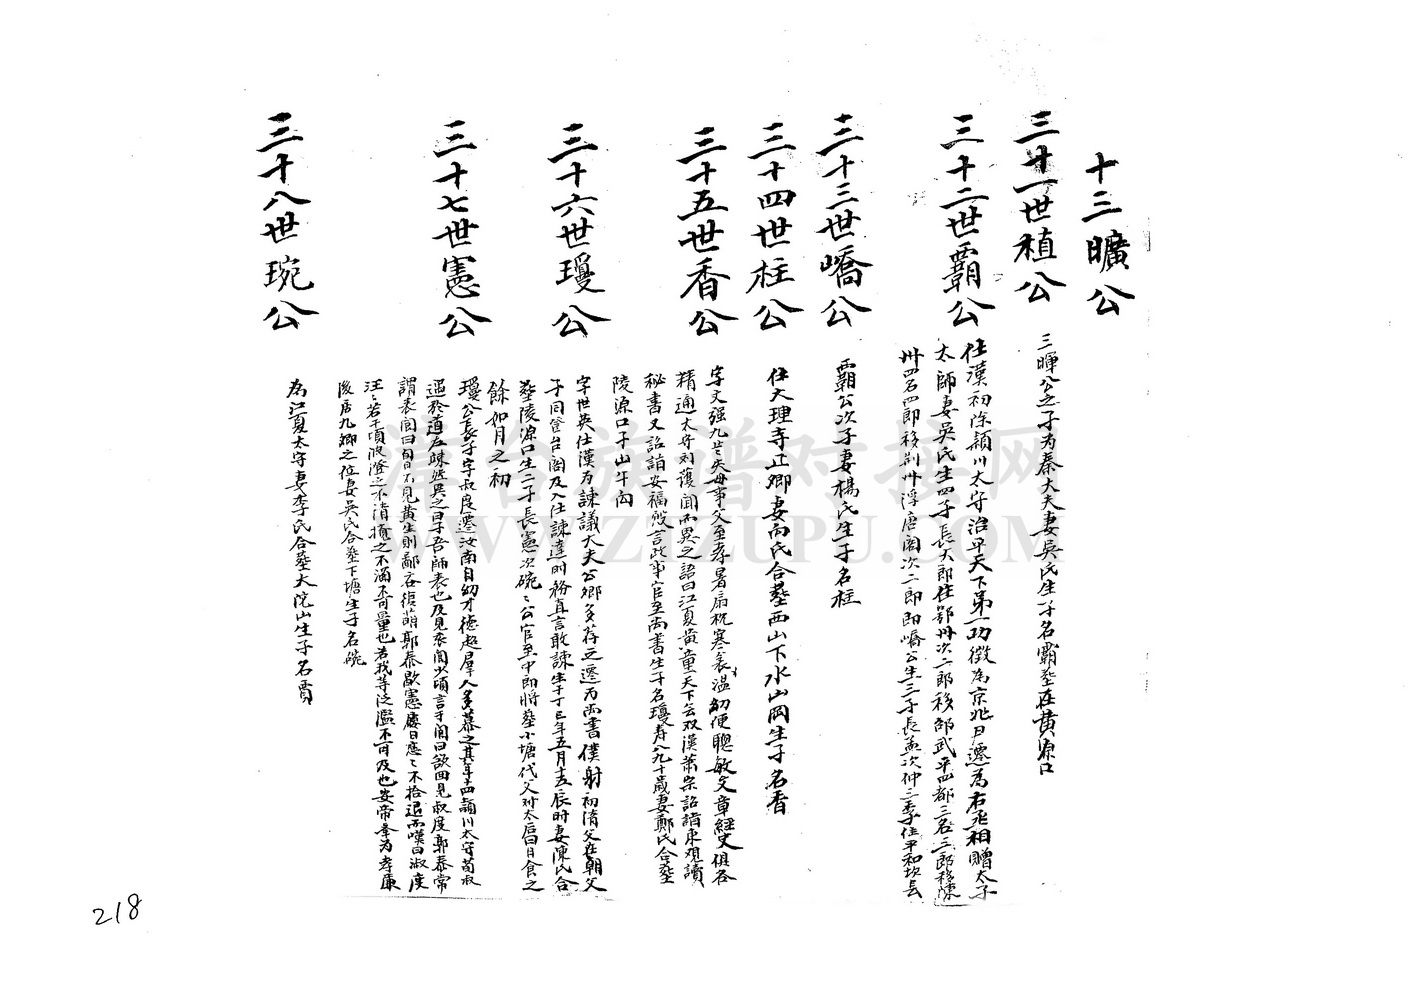 十三曠公
三十一世植公
三暉公之子为秦大夫妻吳氏生一子名霸塟在黄源口
三十二世霸公
仕漢初除穎川太守治平天下第一功徵為京兆尹遷為右丞相贈太子
太師妻吳氏生四子長大郎住鄂州次二郎移邵武平四都三名三郎移陳
州四名四郎移荆州浮唐閣次二郎即嶠公生三子長孟次仲三季住平和坎長
三十三世嶠公
霸公次子妻楊氏生一子名柱
三十四世柱公
仕大理寺正卿妻向氏合塟西山下水山岡生一子名香
三十五世香公
字文强九岁失母事父至孝暑扇枕寒衾温幼便聰敏文章經史俱各
精通太守刘護聞而異之語曰江夏黄童天下无双漢肃宗詔諸東观讀
秘書又詔諸安福殿言政事官至尚書生一子名瓊寿八九十歲妻鄭氏合塟
陵源口子山午向
三十六世瓊公
字世英仕漢为諫議大夫公卿多荐之遷为尚書僕射初隋父在朝父
子同登台閣及入仕諫達时務直言敢諫生于丁巳年五月十五辰时妻陳氏合
塟陵源口生二子長憲次碗〻公官至中郎將塟小塘代父对太后曰日食之
餘如月之初
三十七世憲公
瓊公長子字叔度遷汝南自幼才德超羣人多慕之其年十四穎川太守荀叔
遇於道左竦然異之曰子吾師表也及見袁閬少頃言于閬曰欲回見叔度郭泰常
謂袁閬曰旬日不見黄生則鄙吝復萌郭泰歇憲慶日應〻不拾退而嘆曰淑度
汪〻若千頃波澄之不清撓之不濁不可量也若我等泛濫不可及也安帝奉为孝廉
後居九卿之位妻吳氏合塟下塘生一子名碗
三十八世琬公
為江夏太守妻李氏合塟大院山生一子名賈
218
洋台族谱对接网
WWW.ZTZUPU.COM